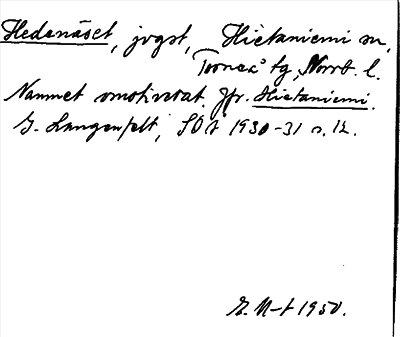 Hedenäset, jvgst, Hietaniemi sn,
Torneå tg, Norrb. l.
Namnet omotiverat. Jfr. Hietaniemi.
G. Langenfelt, SOÅ 1930-31 s. 12.
E. M-t 1950.